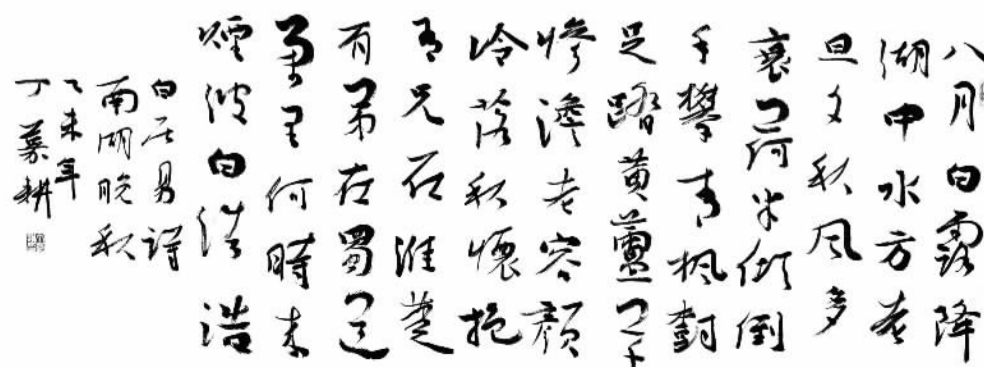 八月白露降
湖中水方老
旦夕秋风多
衰荷半倾倒
手攀青楓樹
足踏黄蘆草
慘澹老容顔
冷落秋懷抱
有兄在淮楚
有弟在蜀道
萬里何時来
煙波白浩浩
白居易詩
南湖晚秋
乙未年
丁慕耕